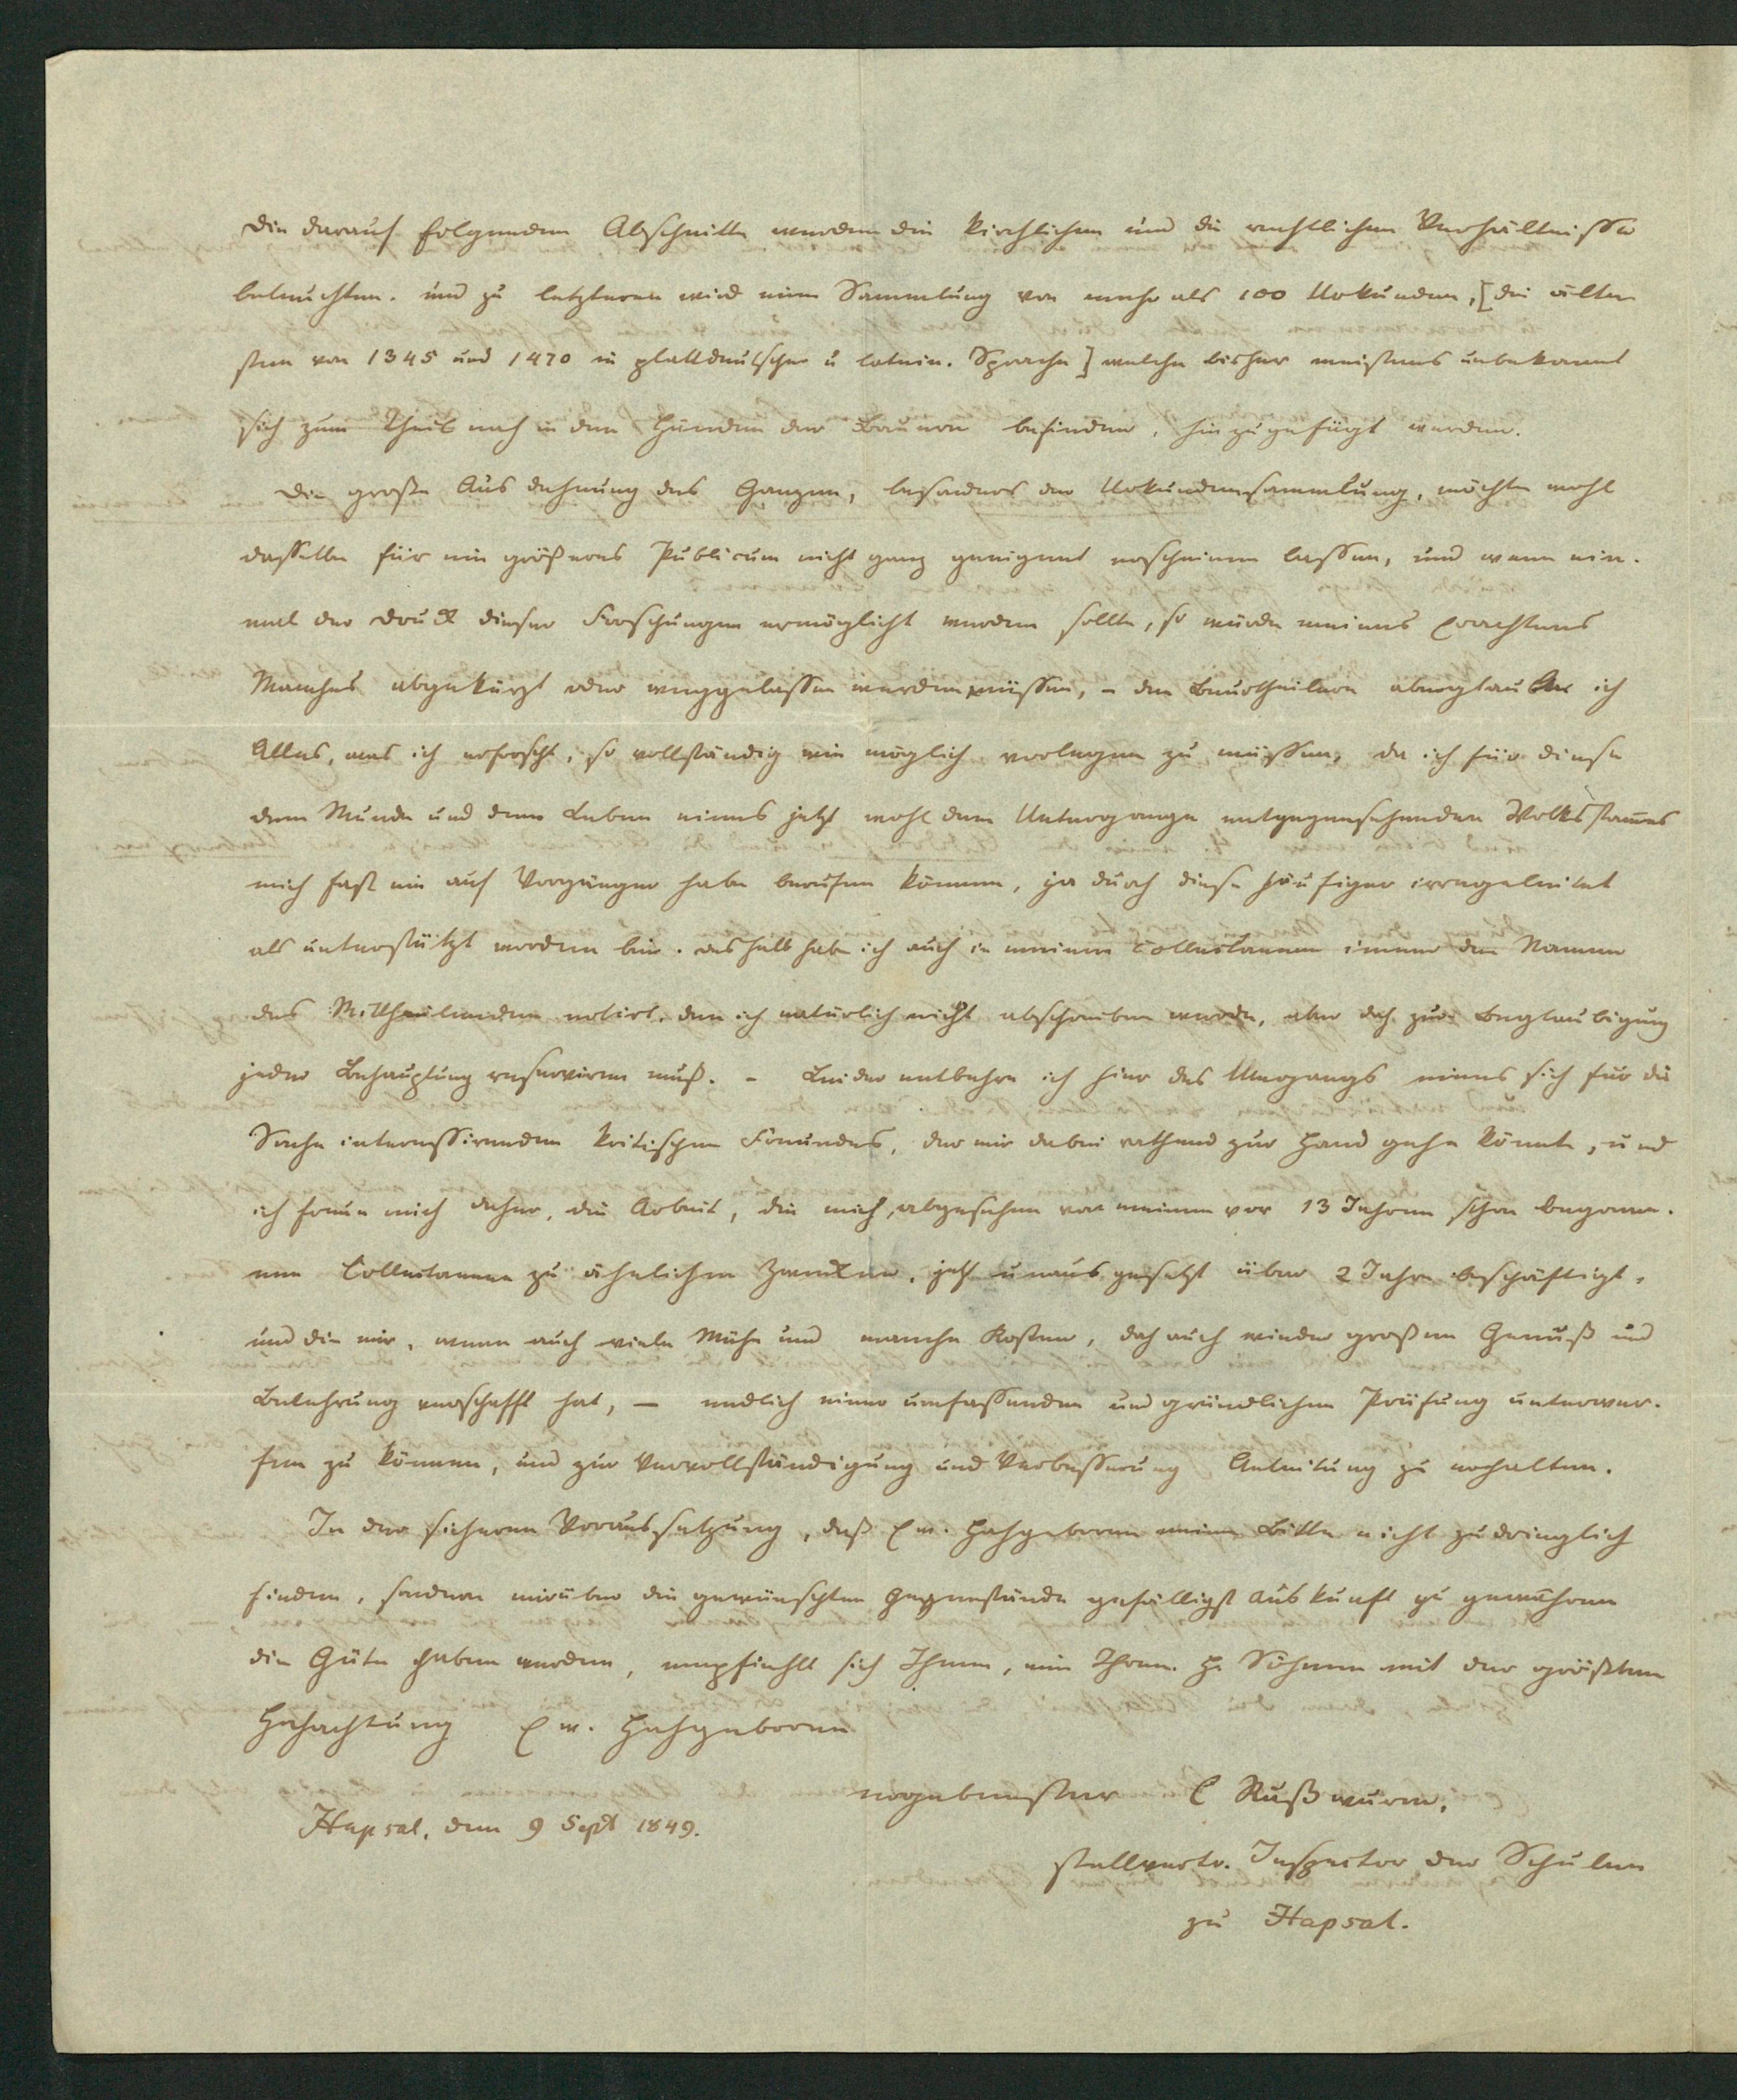 Die darauf folgenden Abschnitte werden die kirchlichen und die rechtlichen Verhältnisse
beleuchten. und zu letzteren wird eine Sammlung von mehr als 100 Urkunden, [die älte
sten von 1345 und 1470 in plattdeutscher u latein. Sprache] welche bisher meistens unbekannt
sich zum Theil noch in den Händen der Bauern befinden, hinzugefügt werden.
Die große Ausdehnung des Ganzen, besonders der Urkundensammlung, möchte wohl
dasselbe für ein größeres Publicum nicht ganz geeignet erscheinen lassen, und wenn ein-
mal der Druck dieser Forschungen ermöglicht werden sollte, so würde meines Erachtens
Manches abgekürzt oder weggelassen werden müssen, – den Beurtheilern aber glaubte ich
Alles, was ich erforscht, so vollständig wie möglich vorlegen zu müssen, da ich für diese
dem Munde und dem Leben eines jetzt wohl dem Untergange entgegensehenden Volksstam̅es
mich fast nie auf Vorgänger habe berufen können, ja durch diese häufiger irregeleitet
als unterstützt worden bin. deshalb habe ich auch in meinen Collectaneen immer den Namen
des Mittheilenden notirt, den ich natürlich nicht abschreiben werde, aber doch zur Beglaubigung
jeder Behauptung reserviren muß. – Leider entbehre ich hier des Umgangs eines sich für die
Sache interessirenden kritischen Freundes, der mir dabei rathend zur Hand gehn könnte, und
ich freue mich daher, die Arbeit, die mich, abgesehen von meinen vor 13 Jahren schon begonne-
nen Collectaneen zu ähnlichen Zwecken, jetzt unausgesetzt über 2 Jahre beschäftigt,
und die mir, wenn auch viele Mühe und manche Kosten, doch auch wieder großen Genuß und
Belehrung verschafft hat, – endlich einer umfassenden und gründlichen Prüfung unterwer-
fen zu können, und zur Vervollständigung und Verbesserung Anleitung zu erhalten.
In der sicheren Voraussetzung, daß Ew. Hochgeboren meine Bitte nicht zudringlich
finden, sondern mir über die gewünschten Gegenstände gefälligst Auskunft zu gewähren
die Güte haben werden, empfiehlt sich Ihnen, wie Ihren H. Söhnen mit der größten
Hochachtung Ew. Hochgeboren
ergebenster C Rußwurm,
Hapsal, den 9 Sept 1849.
stellvertr. Inspector der Schulen
zu Hapsal.